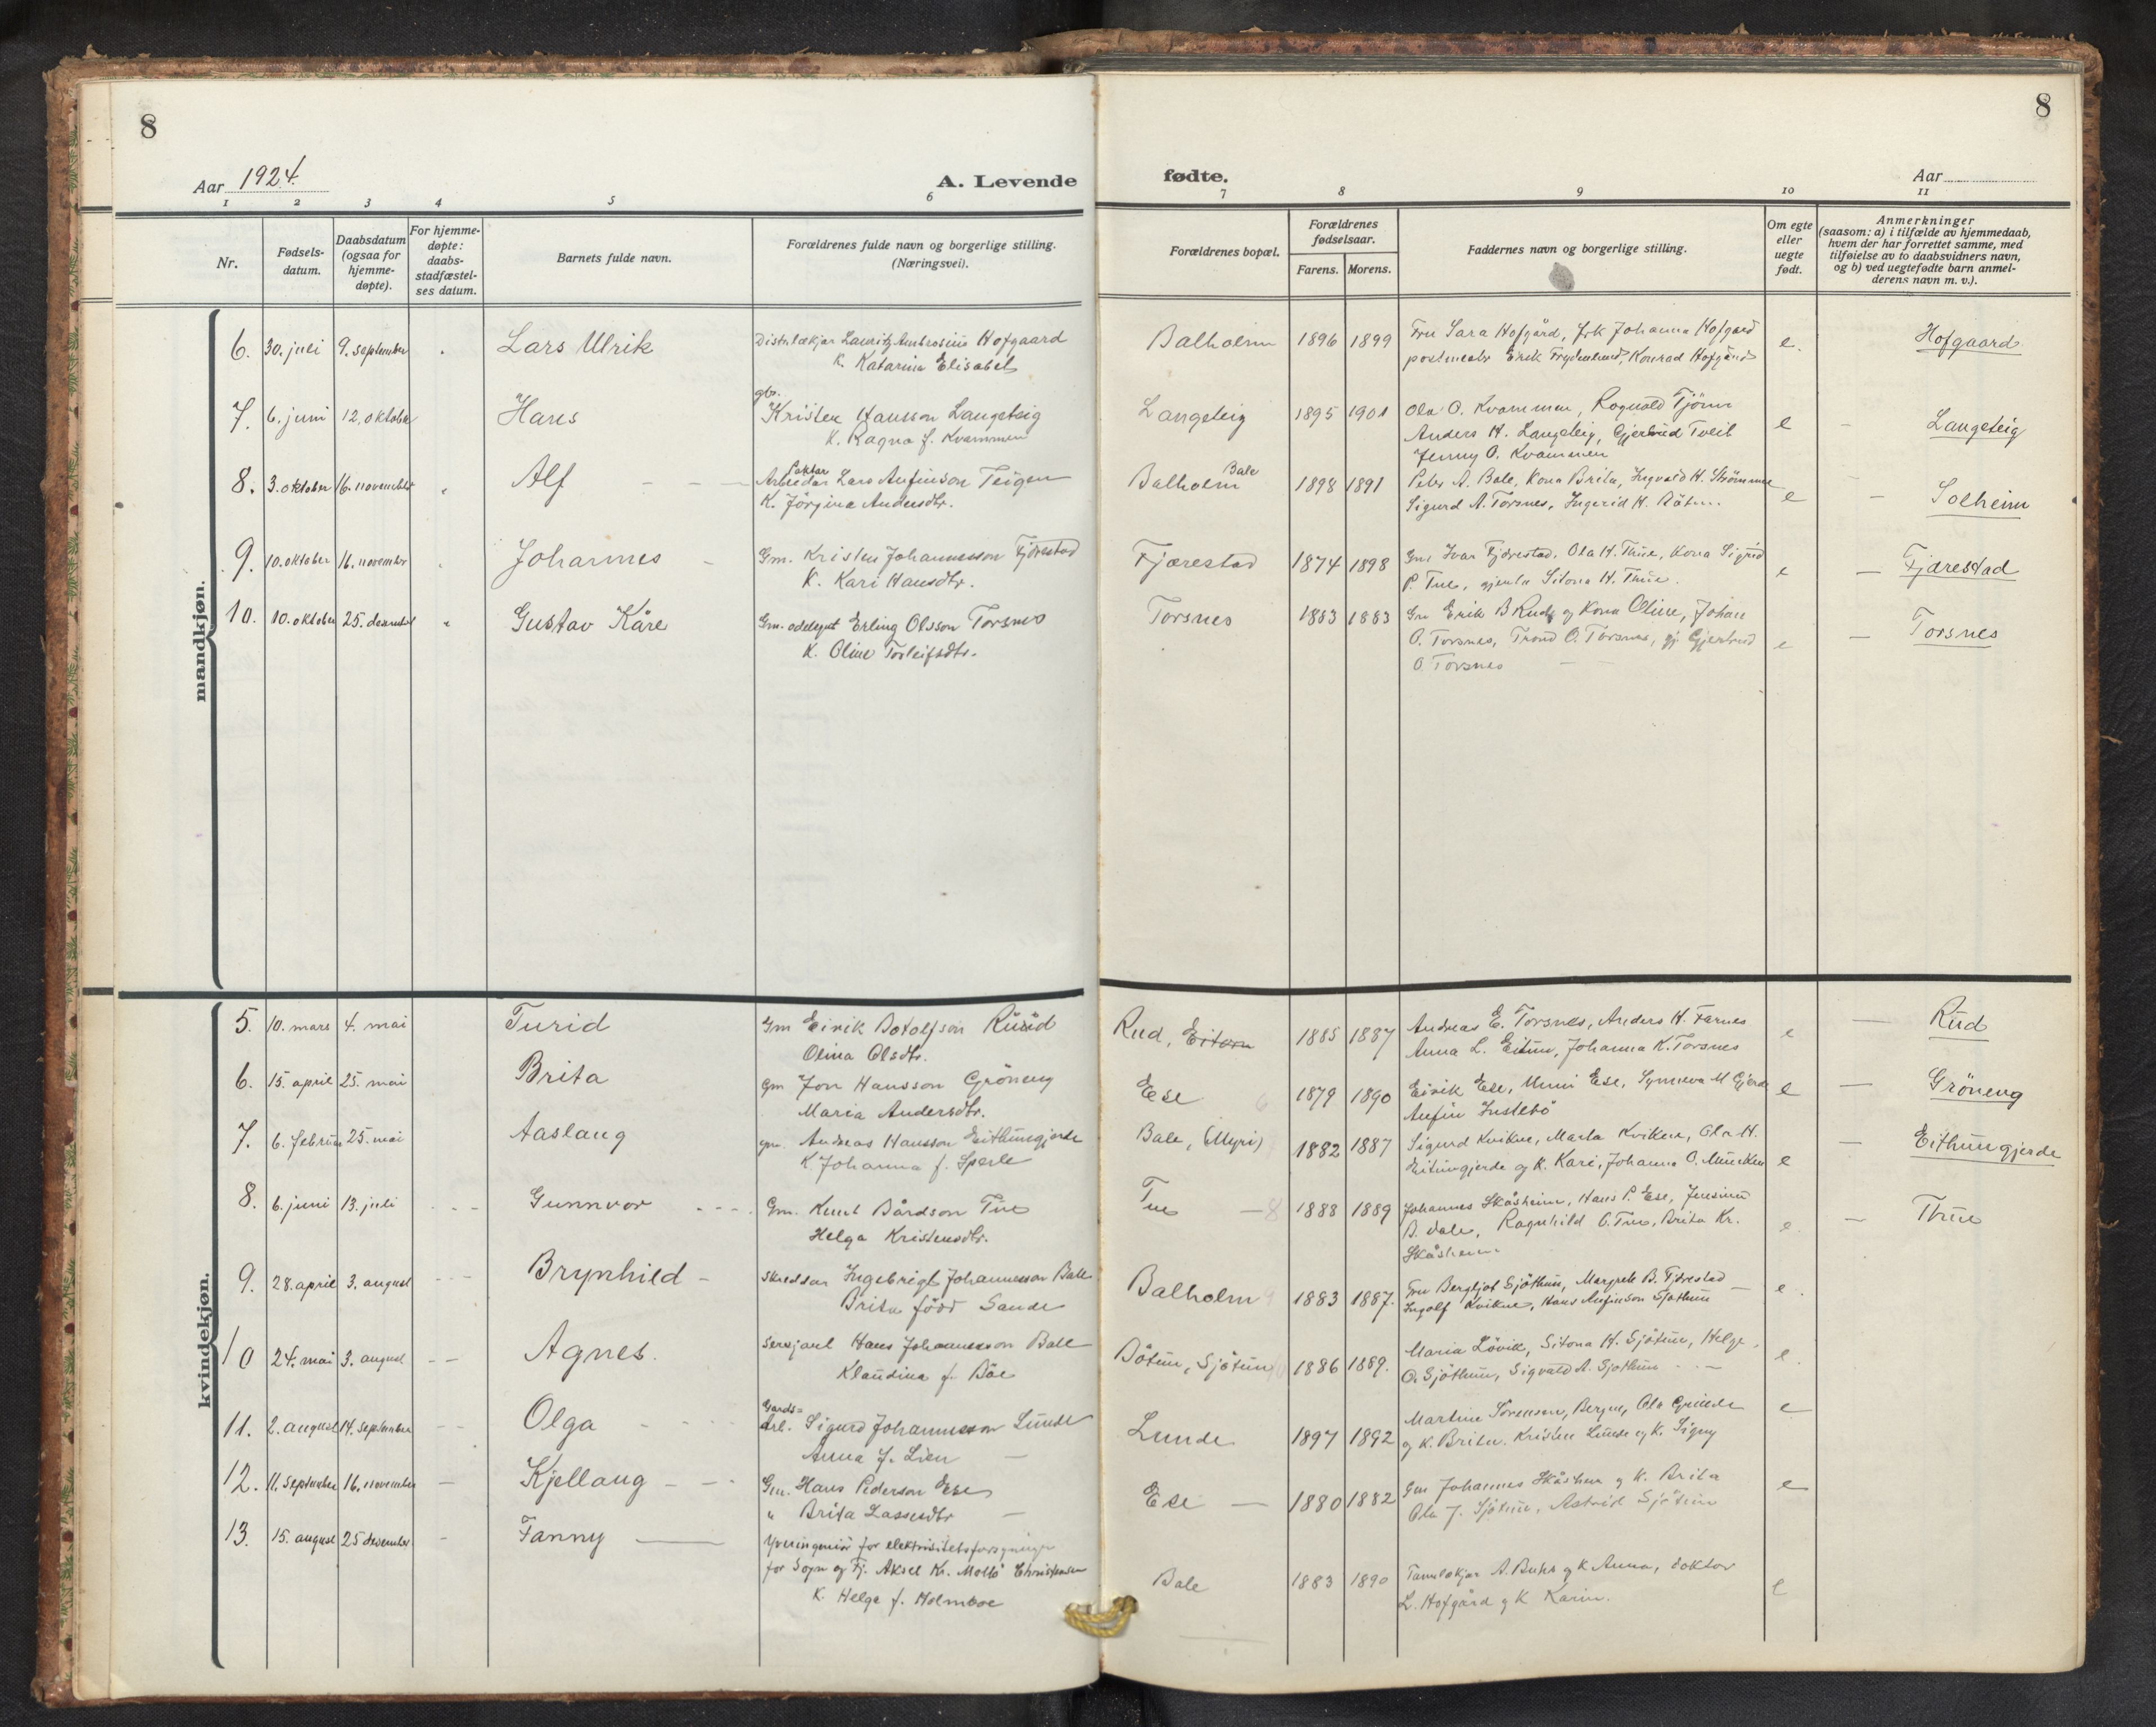 8
8
Aar 1924.
A. Levende
fødte.
Aar
1 2 3 4 5 6
7 8 9 10 11
Nr.
Fødsels-
datum.
Daabsdatum
(ogsaa for
hjemme-
døpte).
For hjemme-
døpte:
daabs-
stadfæstel-
ses datum.
Barnets fulde navn.
Forældrenes fulde navn og borgerlige stilling.
(Næringsvei).
Forældrenes bopæl.
Forældrenes
fødselsaar.
Farens. Morens.
Faddernes navn og borgerlige stilling.
Om egte
eller
uegte
født.
Anmerkninger
(saasom: a) i tilfælde av hjemmedaab,
hvem der har forrettet samme, med
tilføielse av to daabsvidners navn,
og b) ved uegtefødte barn anmel-
derens navn m. v.).
mandkjøn.
6. 30. juli 9. september Lars Ulrik Distr.lækjar Lauritz Ambrosius Hofgaard
K. Katarina Elisabet
Balholm 1896 1899 Fru Sara Hofgård, frk Johanna Hofgaard
postmester Erik Frydenlund, Konrad Hofgård
e. Hofgaard
7. 6. juni 12. oktober Hans gbr.
Kristen Hansson Langeteig
K. Ragna f. Kvammen
Langeteig 1895 1901 Ola O. Kvammen, Rognald Tjönn
Anders H. Langeteig, Gjertrud Tveit
Jenny O. Kvammen
e - Langeteig
8. 3. oktober 16. november Alf - - - Arbeidar Lars Anfinson Teigen
K. Jörgine Andersdtr.
Balholm Bale 1898 1891 Peter A. Bale, Kona Brita, Ingvald H. Strömmen
Sigurd A. Torsnes, Ingerid H.
e - Solheim
9. 10. oktober 16. november Johannes - Gm. Kristen Johannesson Fjörestad
K. Kari Hansdtr.
Fjærestad 1874 1898 Gm. Ivar Fjörestad, Ola H. Thue, Kona Sigrid
P. Tue, gjenta Sitona H. Thue.
e - Fjærestad
10. 10. oktober 25. desember Gustav Kåre Gm. odelsgut Erling Olsson Torsnes
K. Oline Torleifsdtr.
Torsnes 1883 1883 Gm Erik B Rud og Kona Oline, Johan
O. Torsnes, Trond O. Torsnes, gj. Gjertrud
O. Torsnes - -
e - Torsnes
kvindekjøn.
5. 10. mars 4. mai Turid Gm Eirik Botolfson Ruud
Olina Olsdtr.
Rud, Eitorn 1885 1887 Andreas E. Torsnes, Anders H. Farnes
Anna L. Eitun, Johanna K. Torsnes
e - Rud
6. 15. april 25. mai Brita Gm Jon Hansson Gröneng
Maria Andersdtr.
Ese 6 1879 1890 Eirik Ese, Unni Ese, Synneva M Gjerde
Anfin Instebö
e - Gröneng
7. 6. februar 25. mai Aaslaug gm. Andreas Hansson Eithungjerde
K Johanna f. Sperle
Bale, (Myri) 1882 1887 Sigurd Kvikne, Marta Kvikne, Ola H.
Eitungjerde og K. Kari, Johanna O. Munken
e - Eithungjerde
8. 6. juni 13. juli - - - Gunnvor - - - Gm. Knut Bårdson Tue
Helga Kristensdtr.
Tue - 8 1888 1889 Johannes Skåsheim, Hans P. Ese, Jensina
B. Vale, Ragnhild O. Tue, Brita Kr.
Skåsheim
e. - Thue
9. 28. april 3. august - - - Brynhild - skreddar Ingebrigt Johannesson Bale
Brita född Sande
Balholm 9 1883 1887. Fru Bergljot Sjöthun, Margrete B. Fjörestad -
Ingolf Kvikne, Hans Anfinson Sjöthun
e.
10 24. mai 3. august - - Agnes. Sersjant Hans Johannesson Bale
Klaudina f. Böe
Bötun, Sjötun 10 1886 1889. Maria Lövik, Sitona H. Sjötun, Helge
O. Sjöthun, Sigvald A. Sjöthun - -
e.
11. 2. august 14. september - - Olga - - - Gards=
arb. Sigurd Johannesson Lunde
Anna f. Lien -
Lunde 1897 1892 Martine Sörensen, Bergen, Ola Grinde
og K. Brita. Kristen Lunde og K. Signy
e
12. 11. september 16. november - Kjellaug - - Gm. Hans Pederson Ese
" Brita Lassesdtr -
Ese - 1880 1882 Gm Johannes Skåsheim og K. Brita
Ola J. Sjötun, Astrid Sjötun
e
13. 15. august 25 desember - Fanny - Yveringeniör for elektrisitetsforsyningen
for Sogn og Fj. Aksel Kr. Christensen
K. Helga f. Holmboe
Bale 1883 1890 Tannlækjar A. Buhs og K Anna, doktor
L. Hofgård og K Karin.
e